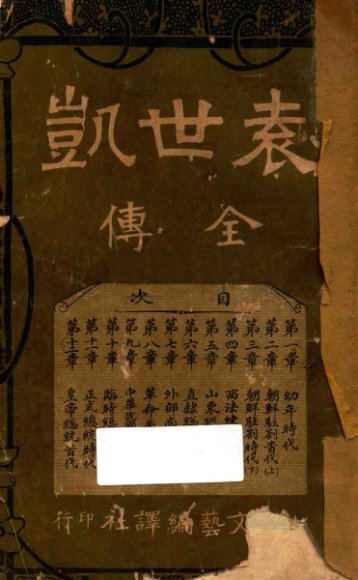 袁世凱
全傳
目次
第一章 幼年時代
第二章 朝鮮駐劄時代(上)
第三章 朝鮮駐劄時代(下)
第四章 西法
第五章 山東
第六章 直隸總
第七章 外部尚
第八章 革命
第九章 中華民國
第十章 臨時總
第十一章 正式總統時代
第十二章 皇帝總統首代
文藝編譯社印行